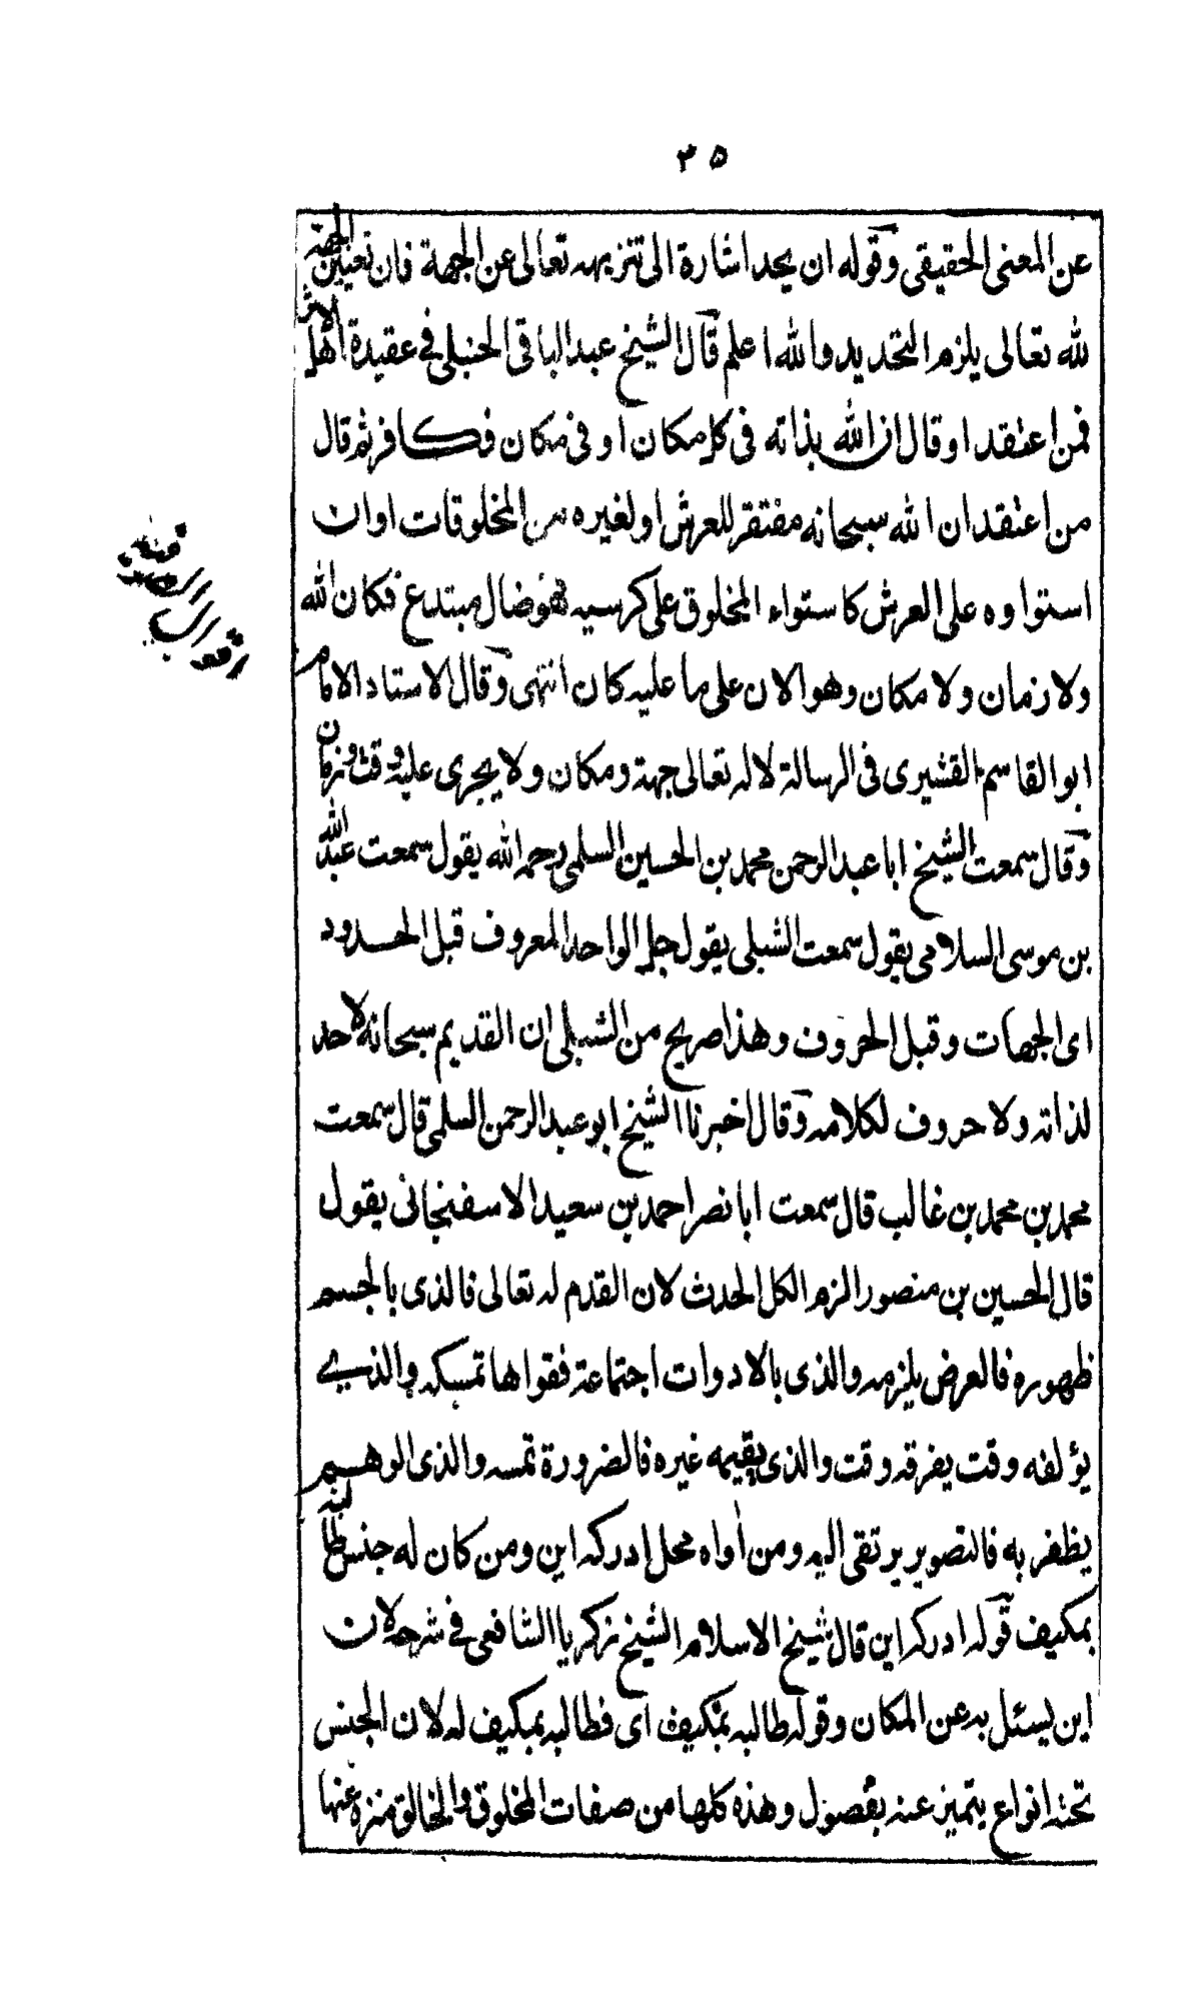 ٣٥
عن المعنى الحقيقى وقوله ان يحد اشارة الى تنزيهه تعالى عن الجهة فان تعيين الجهة
لله تعالى يلزم التحديد والله اعلم قال الشيخ عبد الباقى الحنبلى فى عقيدة اهل الاثر
فمن اعتقد او قال ان الله بذاته فى كل مكان او فى مكان فكافر ثم قال
من اعتقد ان الله سبحانه مفتقر للعرش او لغيره من المخلوقات او ان
استواوه على العرش كاستواء المخلوق على كرسيه فهو ضال مبتدع فكان الله
ولا زمان ولا مكان وهو الان على ما عليه كان انتهى وقال الاستاد الامام
ابو القاسم القشيرى فى الرسالة لا له تعالى جهة ومكان ولا يجرى عليه وقت وزمان
وقال سمعت الشيخ ابا عبد الرحمن محمد بن الحسين السلمى رحمه الله يقول سمعت عبد الله
بن موسى السلامى يقول سمعت الشبلى يقول جل الواحد المعروف قبل الحدود
اى الجهات وقبل الحروف وهذا صريح من الشبلى ان القديم سبحانه لا حد
لذاته ولا حروف لكلامه وقال اخبرنا الشيخ ابو عبد الرحمن السلمى قال سمعت
محمد بن محمد بن غالب قال سمعت ابا نصر احمد بن سعيد الاسفنجانى يقول
قال الحسين بن منصور الزم الكل الحدث لان القدم له تعالى فالذى بالجسم
ظهوره فالعرض يلزمه والذى بالادوات اجتماعة فقواها تمسكه والذي
يؤلفه وقت يفرقه وقت والذى يقيمه غيره فالضرورة تمسه والذى الوهم
يظفر به فالتصوير يرتقى اليه ومن أواه محل ادركه اين ومن كان له جنس طالبه
بمكيف قوله ادركه اين قال شيخ الاسلام الشيخ زكريا الشافعى فى شرحه لان
اين يسئل به عن المكان وقوله طالبه بمكيف اى فطالبه بمكيف له لان الجنس
تحته انواع يتميز عنه بفصول وهذه كلها من صفات المخلوق والخالق منزه عنها